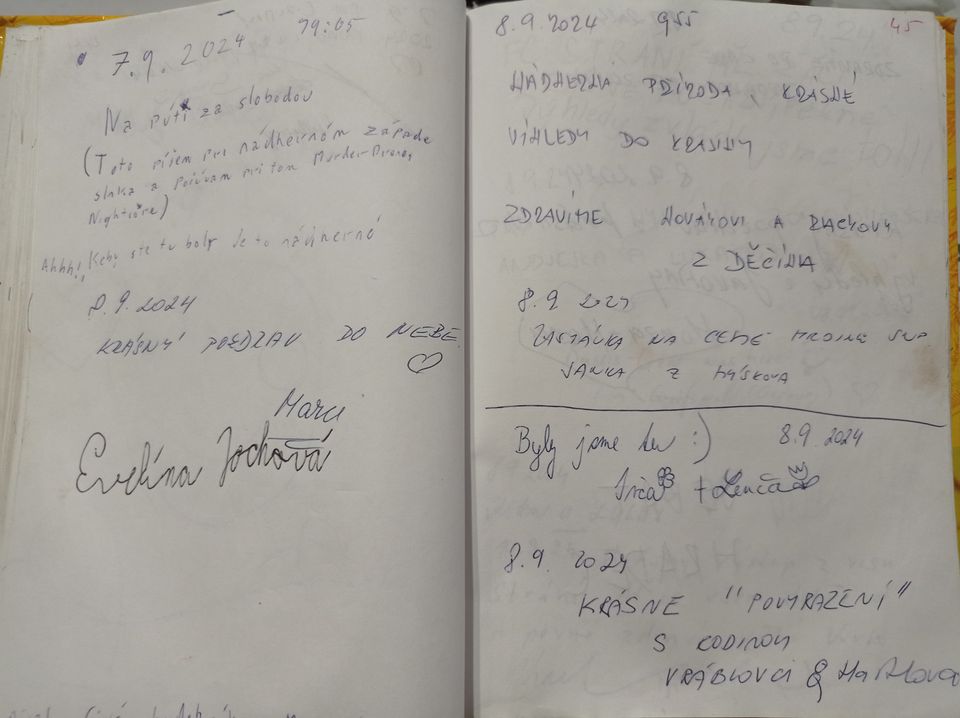 7.9.2024 19:05
Na púti za slobodou
(Toto píšem pri nádhernóm západe
slnka a počúvam pri tom Murder Drones
Nightcore)
Ahhh!! Keby ste tu boly Je to nádherné
8.9.2024
KRÁSNÝ POZDRAV DO NEBE
Marci
Evelína Jochová
8.9.2024 955 45
NÁDHERNA PŘÍRODA, KRÁSNÉ
VÍHLEDY DO KRAJINY
ZDRAVÍME NOVÁKOVI A
Z DĚČÍNA
8.9 2024
ZASTÁVKA NA CESTĚ
JANKA Z
Byly jsme tu :) 8.9.2024
+ Lenča
8.9. 2024
KRÁSNE "POVYRAZENÍ"
S RODINOU
VRÁBLOVCI &